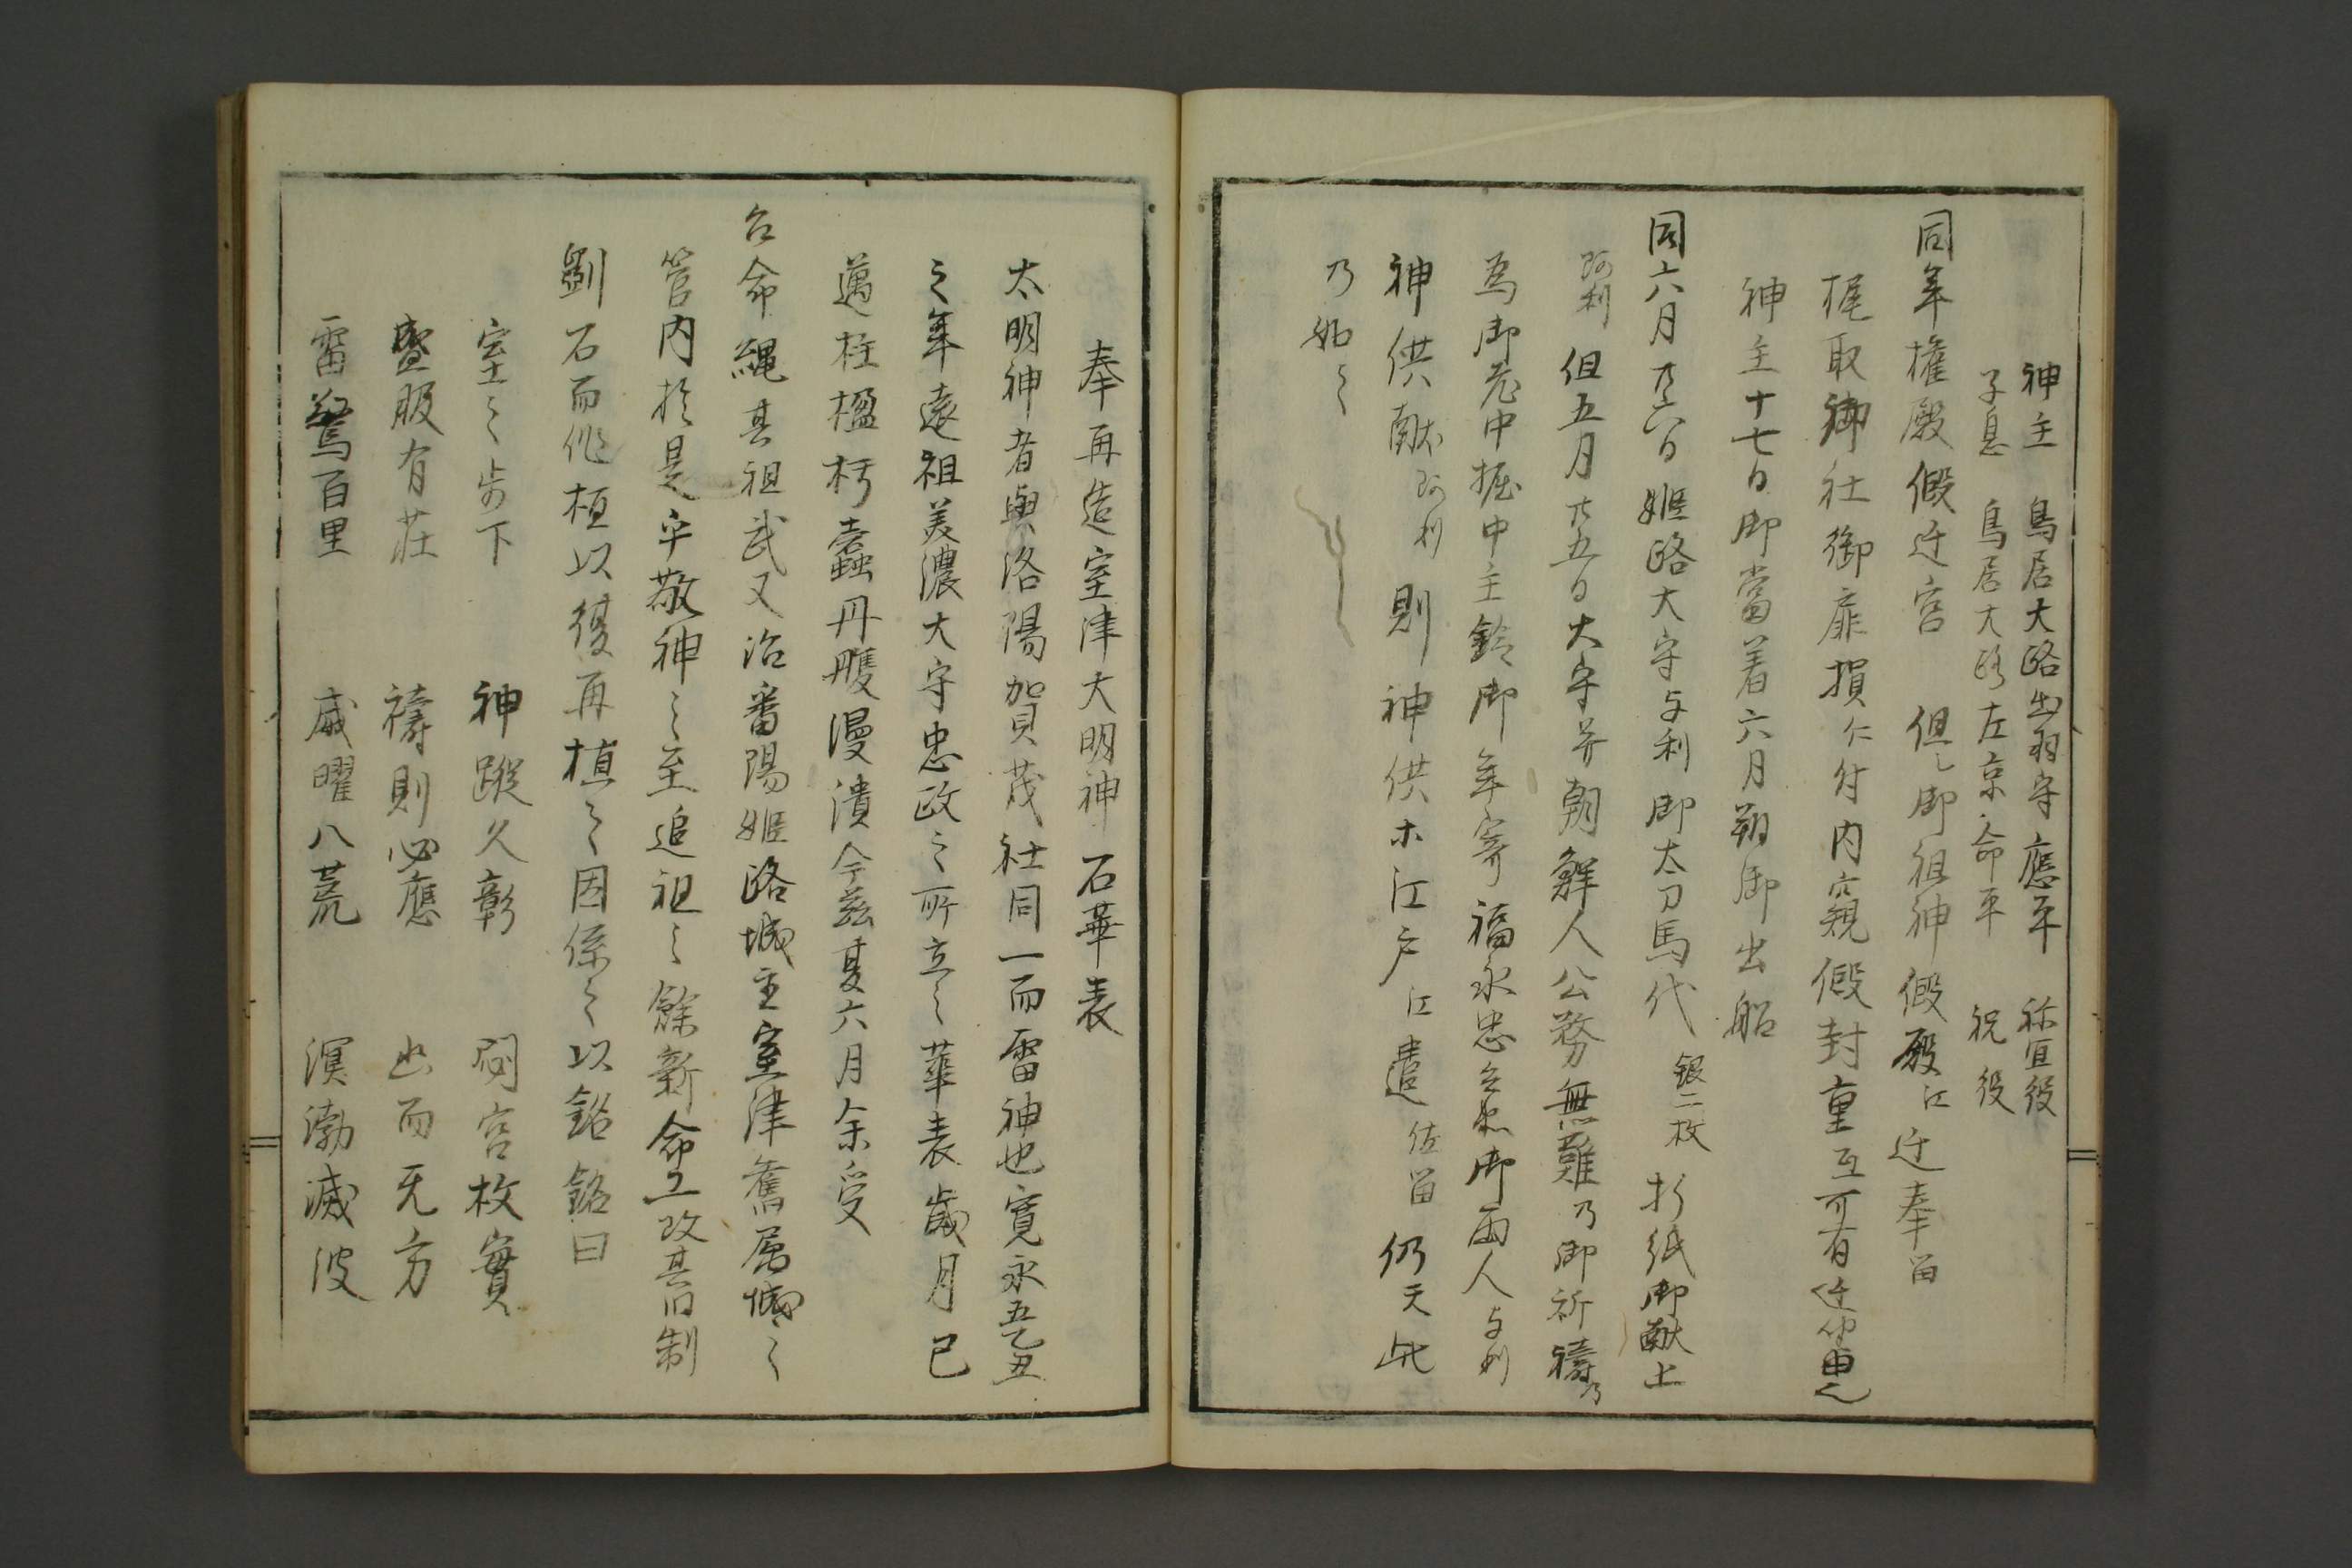 神主 鳥居大路出羽守應平 祢宜役
子息 鳥居大路左京命平 祝役
同年權殿假迁宮 但シ御祖神假殿江迁奉畄
梶取御社御扉損仁付内窺假封重互可有迁
神主十七日御當着六月朔御出船
同六月 姬路大守与利御太刀馬代 銀二枚 折紙御献上
阿利 但五月廿五日大守并朝鮮人公務無難乃御祈禱乃
為御 中 主鈴御年寄福永忠 御両人与利
神供献阿利則神供 江戸江遣佐畄仍天此
乃如之
奉再造室津大明神石華表
太明神者與洛陽賀茂社同一而雷神也寛永五乙丑
之年遠祖美濃大守忠政之所立之華表歳月已
邁柱楹朽蠹丹雘漫漬今茲夏六月余受
台命縄其祖武又治番陽姫路城主室津舊属城之
管内於是乎敬神之至追祖之餘新命工改其旧制
劉石而作桓以復再植之因係之以銘銘曰
室之歩下 神蹤久彰 閟宮枚實
盛服有莊 禱則必應 出而无方
雷驚百里 威曜八荒 溟渤滅波